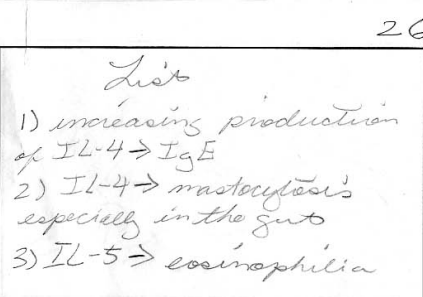 26
List
1) increasing production
of IL-4 → IgE
2) IL-4 → mastocytosis
especially in the gut
3) IL-5 → eosinophilia